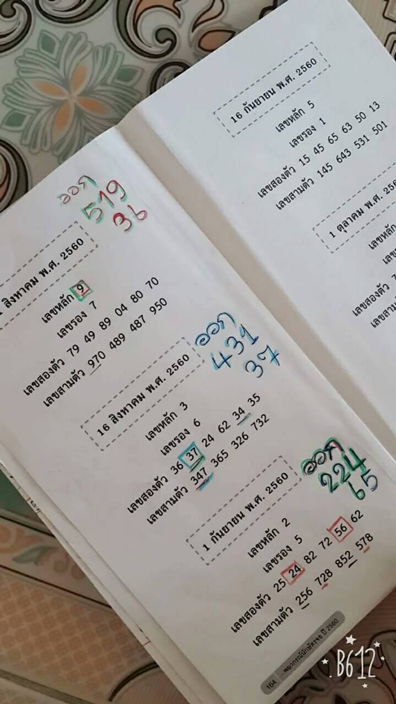 ออก
519
36
สิงหาคม พ.ศ. 2560
เลขหลัก 9
เลขรอง 7
เลขสองตัว 79 49 89 04 80 70
เลขสามตัว 970 489 487 950
ออก
431
37
16 สิงหาคม พ.ศ. 2560
เลขหลัก 3
เลขรอง 6
เลขสองตัว 36 37 24 62 34 35
เลขสามตัว 347 365 326 732
ออก
224
65
1 กันยายน พ.ศ. 2560
เลขหลัก 2
เลขรอง 5
เลขสองตัว 25 24 82 72 56 62
เลขสามตัว 256 728 852 578
164
16 กันยายน พ.ศ. 2560
เลขหลัก 5
เลขรอง 1
เลขสองตัว 15 45 65 63 50 13
เลขสามตัว 145 643 531 501
1 ตุลาคม พ.ศ. 256
เลขหลัก
เลขรอง
เลขสองตัว
เลขสามตัว
B612